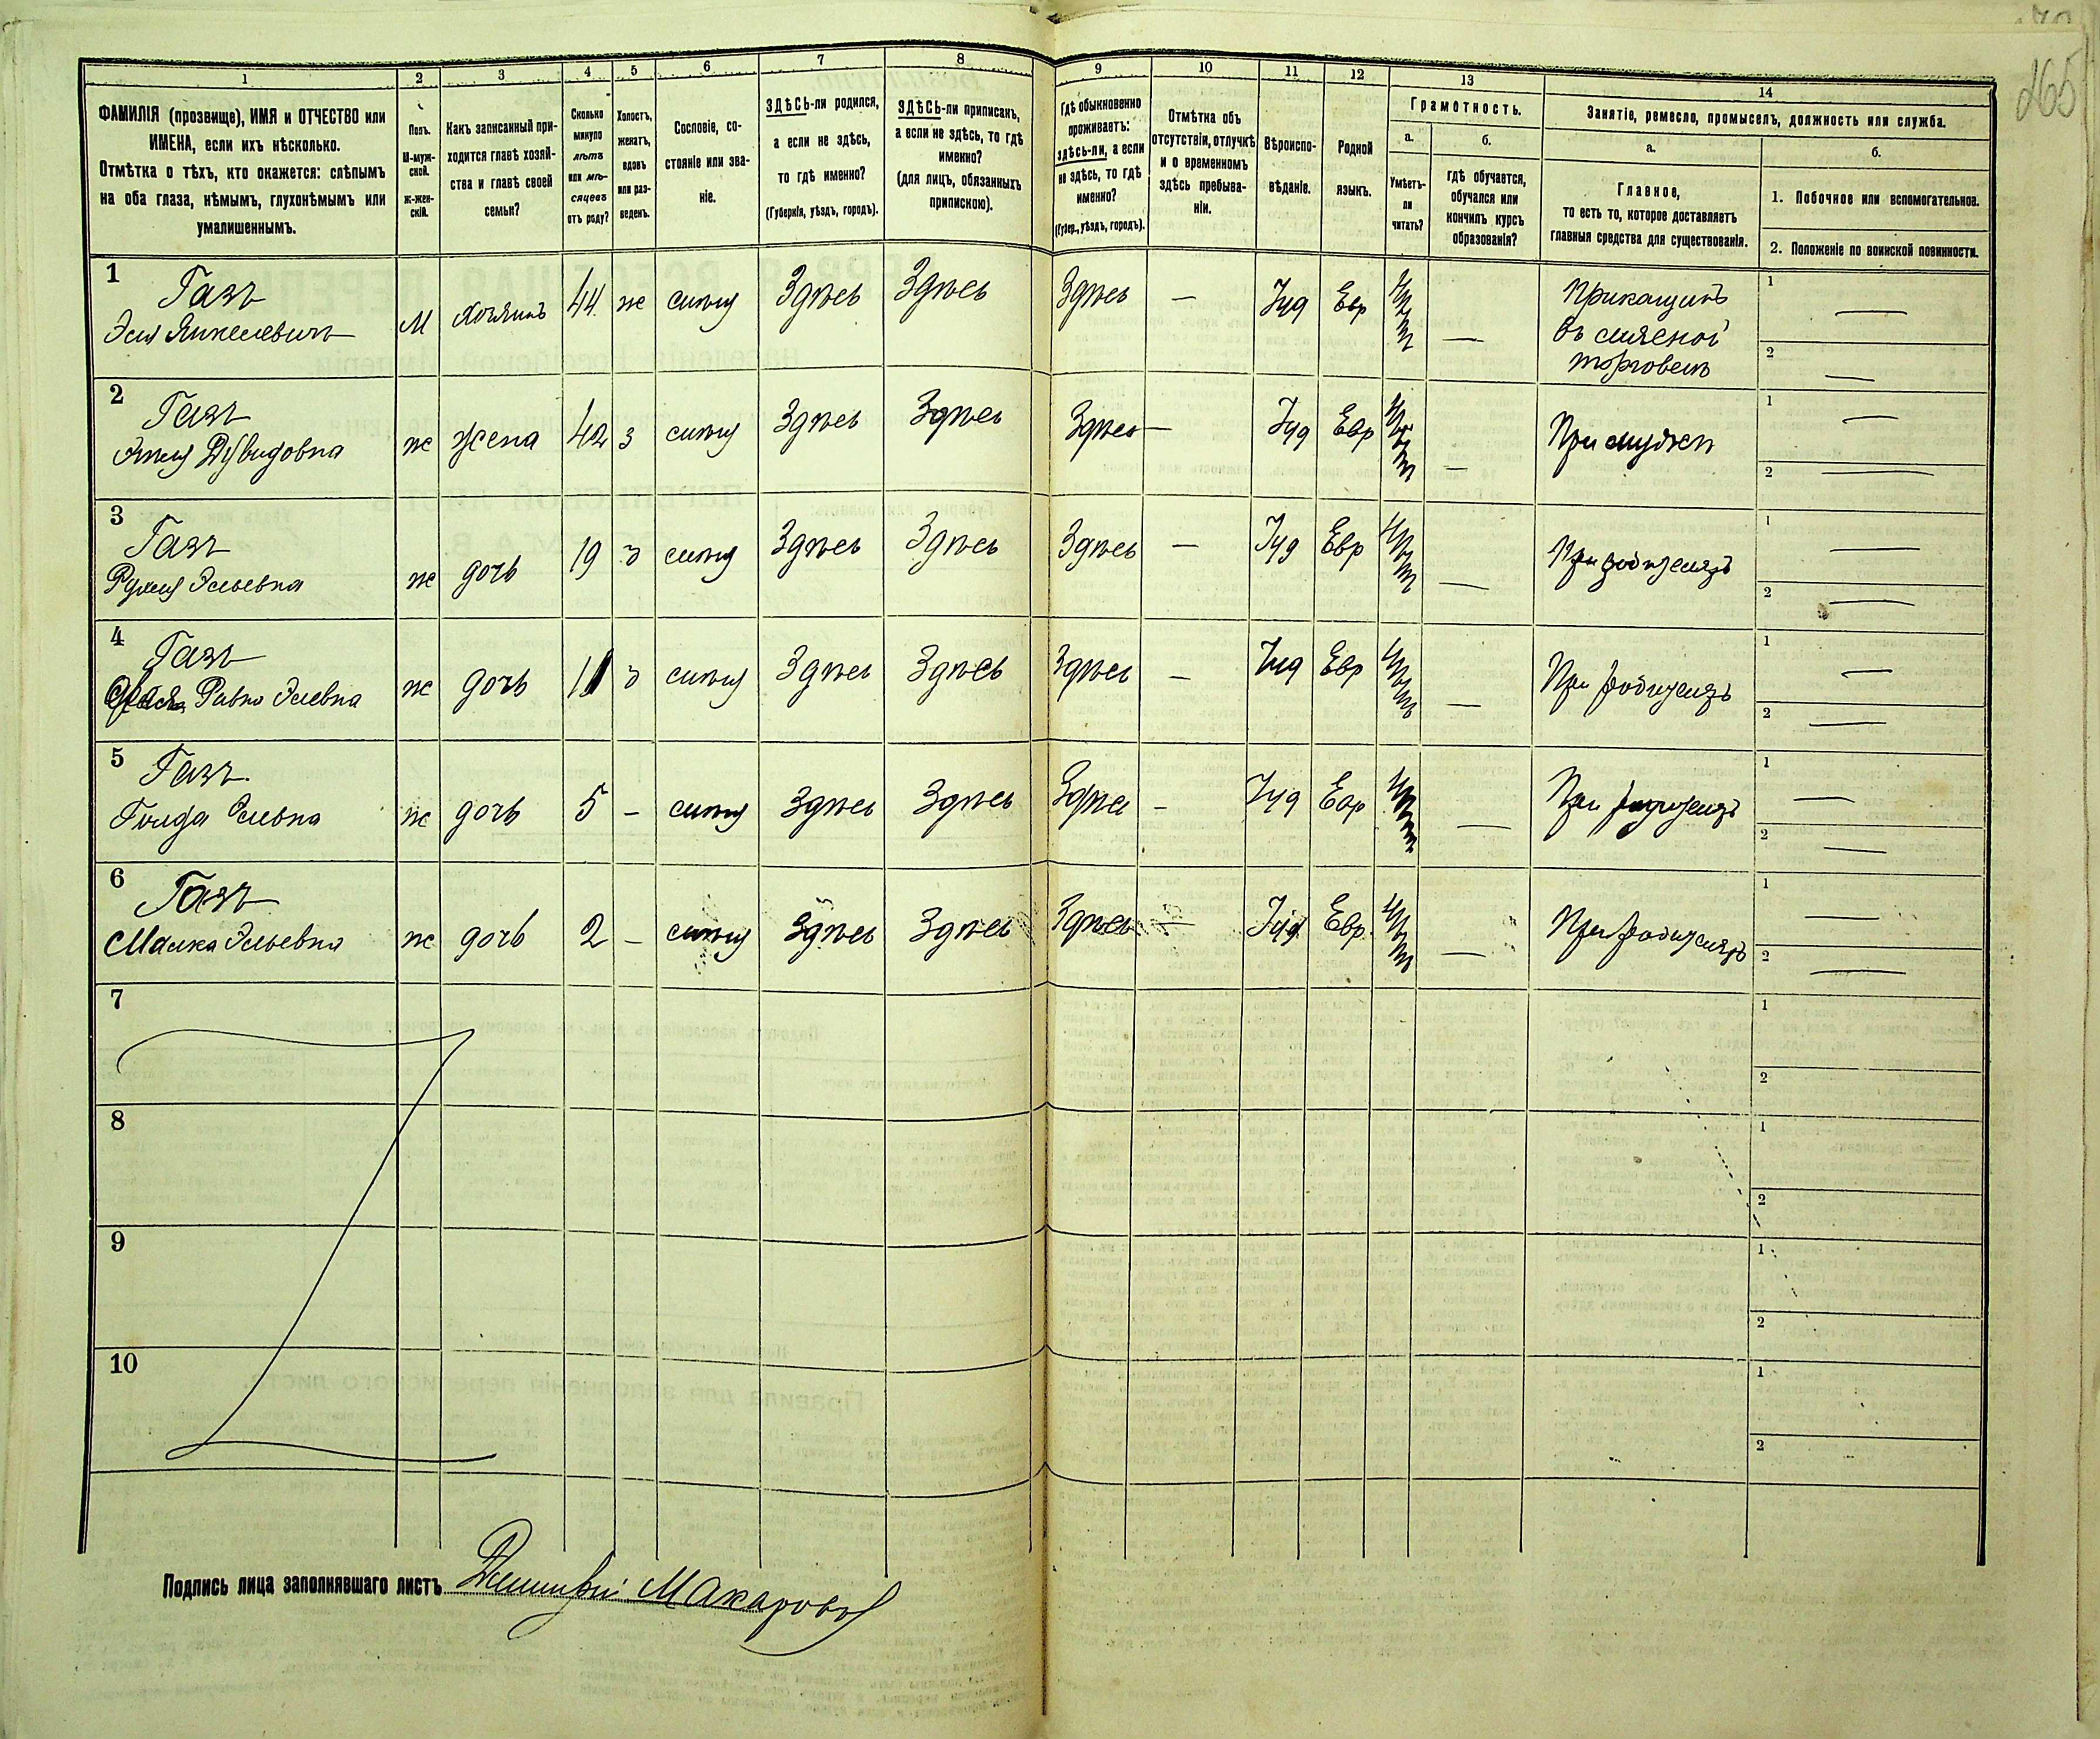 265
1 2 3 4 5 6 7 8 9 10 11 12 13 14
ФАМИЛІЯ (прозвище), ИМЯ и ОТЧЕСТВО или
ИМЕНА, если ихъ нѣсколько.
Отмѣтка о тѣхъ, кто окажется: слѣпымъ
на оба глаза, нѣмымъ, глухонѣмымъ или
умалишеннымъ.
Полъ.
М-муж-
ской.
Ж-жен-
скій.
Какъ записанный при-
ходится главѣ хозяй-
ства и главѣ своей
семьи?
Сколько
минуло
лѣтъ
или мѣ-
сяцевъ
отъ роду?
Холостъ,
женатъ,
вдовъ
или раз-
веденъ.
Сословіе, со-
стояніе или зва-
ніе.
ЗДѢСЬ-ли родился,
а если не здѣсь,
то гдѣ именно?
(Губернія, уѣздъ, городъ).
ЗДѢСЬ-ли приписанъ,
а если не здѣсь, то гдѣ
именно?
(для лицъ, обязанныхъ
припискою).
Гдѣ обыкновенно
проживаетъ:
здѣсь-ли, а если
не здѣсь, то гдѣ
именно?
(Губер., уѣздъ, городъ).
Отмѣтка объ
отсутствіи, отлучкѣ
и о временномъ
здѣсь пребыва-
ніи.
Вѣроиспо-
вѣданіе.
Родной
языкъ.
Грамотность.
а.
Умѣетъ-
ли
читать?
б.
гдѣ обучается,
обучался или
кончилъ курсъ
образованія?
Занятіе, ремесло, промыселъ, должность или служба.
а.
Главное,
то есть то, которое доставляетъ
главныя средства для существованія.
б.
1. Побочное или вспомогательное.
2. Положеніе по воинской повинности.
1
Газъ
М хозяинъ 44 ж Здѣсь Здѣсь Здѣсь — Іуд Евр —
Прикащикъ
въ
торговлѣ
1 —
2 —
2
Газъ
ж жена 42 з Здѣсь Здѣсь Здѣсь — Іуд Евр — При мужѣ
1 —
2 —
3
Газъ
ж дочь 19 д Здѣсь Здѣсь Здѣсь — Іуд Евр — При родителяхъ
1 —
2 —
4
Газъ
ж дочь 11 д Здѣсь Здѣсь Здѣсь — Іуд Евр — При родителяхъ
1 —
2 —
5
Газъ
Голда Элевна ж дочь 5 — Здѣсь Здѣсь Здѣсь — Іуд Евр — При родителяхъ
1 —
2 —
6
Газъ
Малка Эльевна ж дочь 2 — Здѣсь Здѣсь Здѣсь — Іуд Евр — При родителяхъ
1 —
2 —
7
1
2
8
1
2
9
1
2
10
1
2
Подпись лица заполнявшаго листъ Димитрій Макаровъ